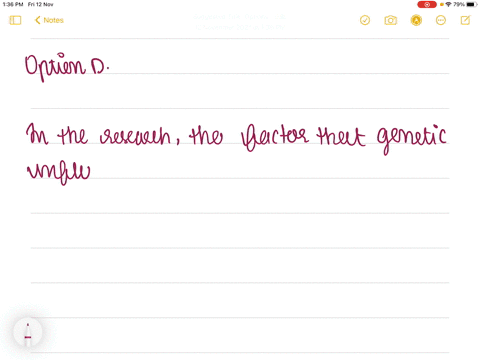 1:36 PM Fri 12 Nov
79%
Notes
Option D.
In the research, the factor that genetic
influ